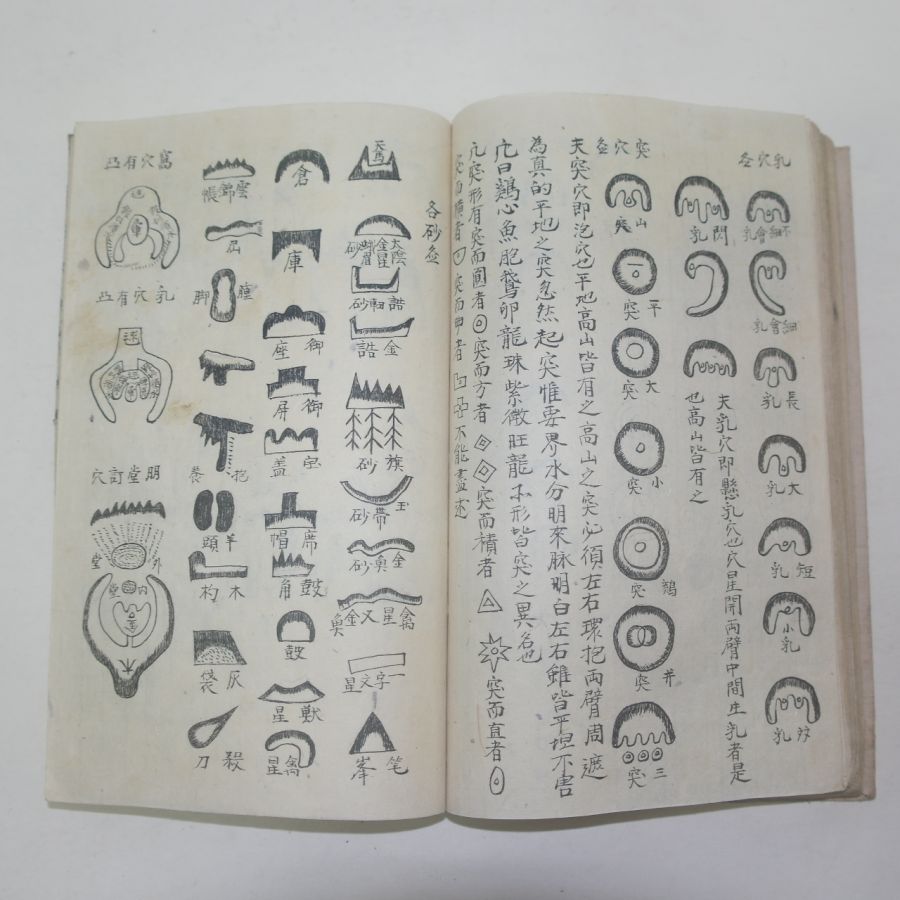 乳穴
不細會乳
細會乳
長乳
大乳
短乳
小乳
双乳
閃乳
夫乳穴即懸乳穴也穴星開兩臂中間生乳者是
也高山皆有之
突穴
山突
平突
大突
小突
鵝突
并突
三突
夫突穴即泡穴也平地高山皆有之高山之突必須左右環抱兩臂周遮
為真的平地之突忽然起突惟要界水分明來脉明白左右雖皆平坦不害
穴曰鷄心魚胞鵞卵龍珠紫微旺龍不形皆突之異名也
穴突形有突而圓者突而方者突而積者突而直者
突而橫者突而者不能盡述
各砂
天馬
太陰金星蛾眉砂
誥軸砂
金誥
旗砂
玉帶砂
金魚砂
禽星文金魚
一字文星
笔峯
倉
庫
御座
御屏
宝盖
席帽
鼓角
鼓
獸星
禽星
雲錦帳
屈
腫脚
抱養
羊頭
木杓
灰袋
殺刀
窩穴有
乳穴有
明堂訂穴
外堂
內堂